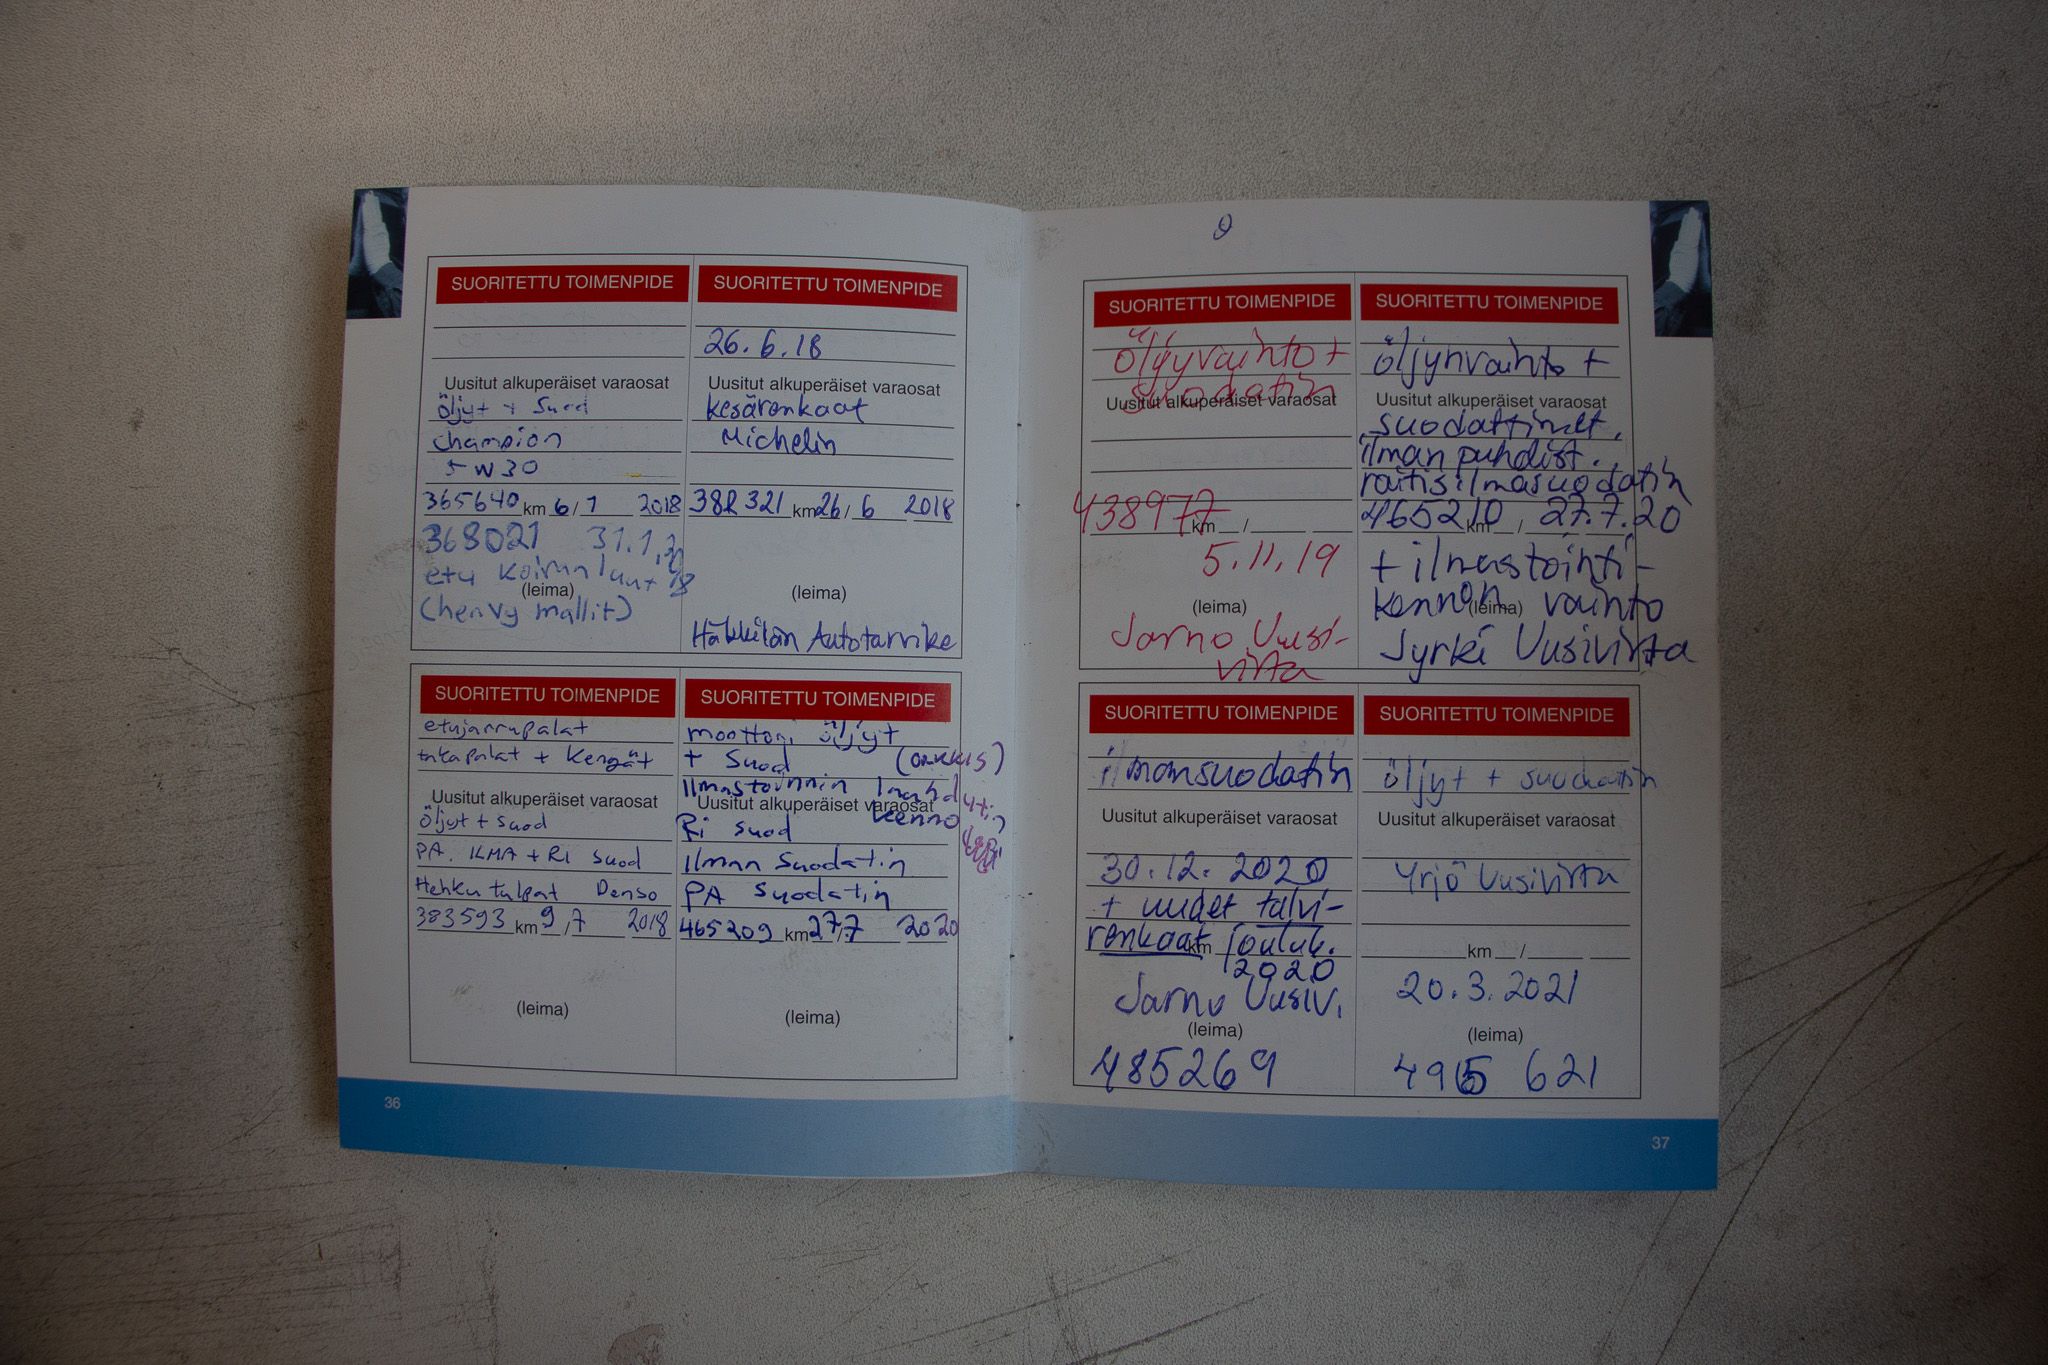 SUORITETTU TOIMENPIDE
Uusitut alkuperäiset varaosat
öljyt + Suod
champion
5W30
365640 km 6/1 2018
368021 31.1.
etu koiran luut 18
(leima)
(heavy mallit)
SUORITETTU TOIMENPIDE
26.6.18
Uusitut alkuperäiset varaosat
kesärenkaat
Michelin
382 321 km 26/6 2018
(leima)
Häkkilän Autotarvike
SUORITETTU TOIMENPIDE
etujarrupalat
takapalat + Kengät
Uusitut alkuperäiset varaosat
öljyt + suod
PA. ILMA + RI suod
Hehku tulpat Denso
383593 km 9/7 2018
(leima)
SUORITETTU TOIMENPIDE
moottori öljyt
+ Suod
Ilmastoinnin
Uusitut alkuperäiset varaosat
kenno
Ri suod
Ilman Suodatin
PA suodatin
465209 km 27/7 2020
(leima)
36
SUORITETTU TOIMENPIDE
Öljyvaihto +
suodatin
Uusitut alkuperäiset varaosat
438977
km /
5.11.19
(leima)
Jarno Uusi-
virta
SUORITETTU TOIMENPIDE
öljynvaihto +
Uusitut alkuperäiset varaosat
suodattimet,
ilman puhdist.,
raitisilmasuodatin
465210 km / 27.7.20
+ ilmastointi-
kennon vaihto
(leima)
Jyrki Uusivirta
SUORITETTU TOIMENPIDE
ilmansuodatin
Uusitut alkuperäiset varaosat
30.12.2020
+ uudet talvi-
renkaat jouluk.
km
2020
Jarno Uusiv.
(leima)
485269
SUORITETTU TOIMENPIDE
öljyt + suodatin
Uusitut alkuperäiset varaosat
Yrjö Uusivirta
km /
20.3.2021
(leima)
495 621
37